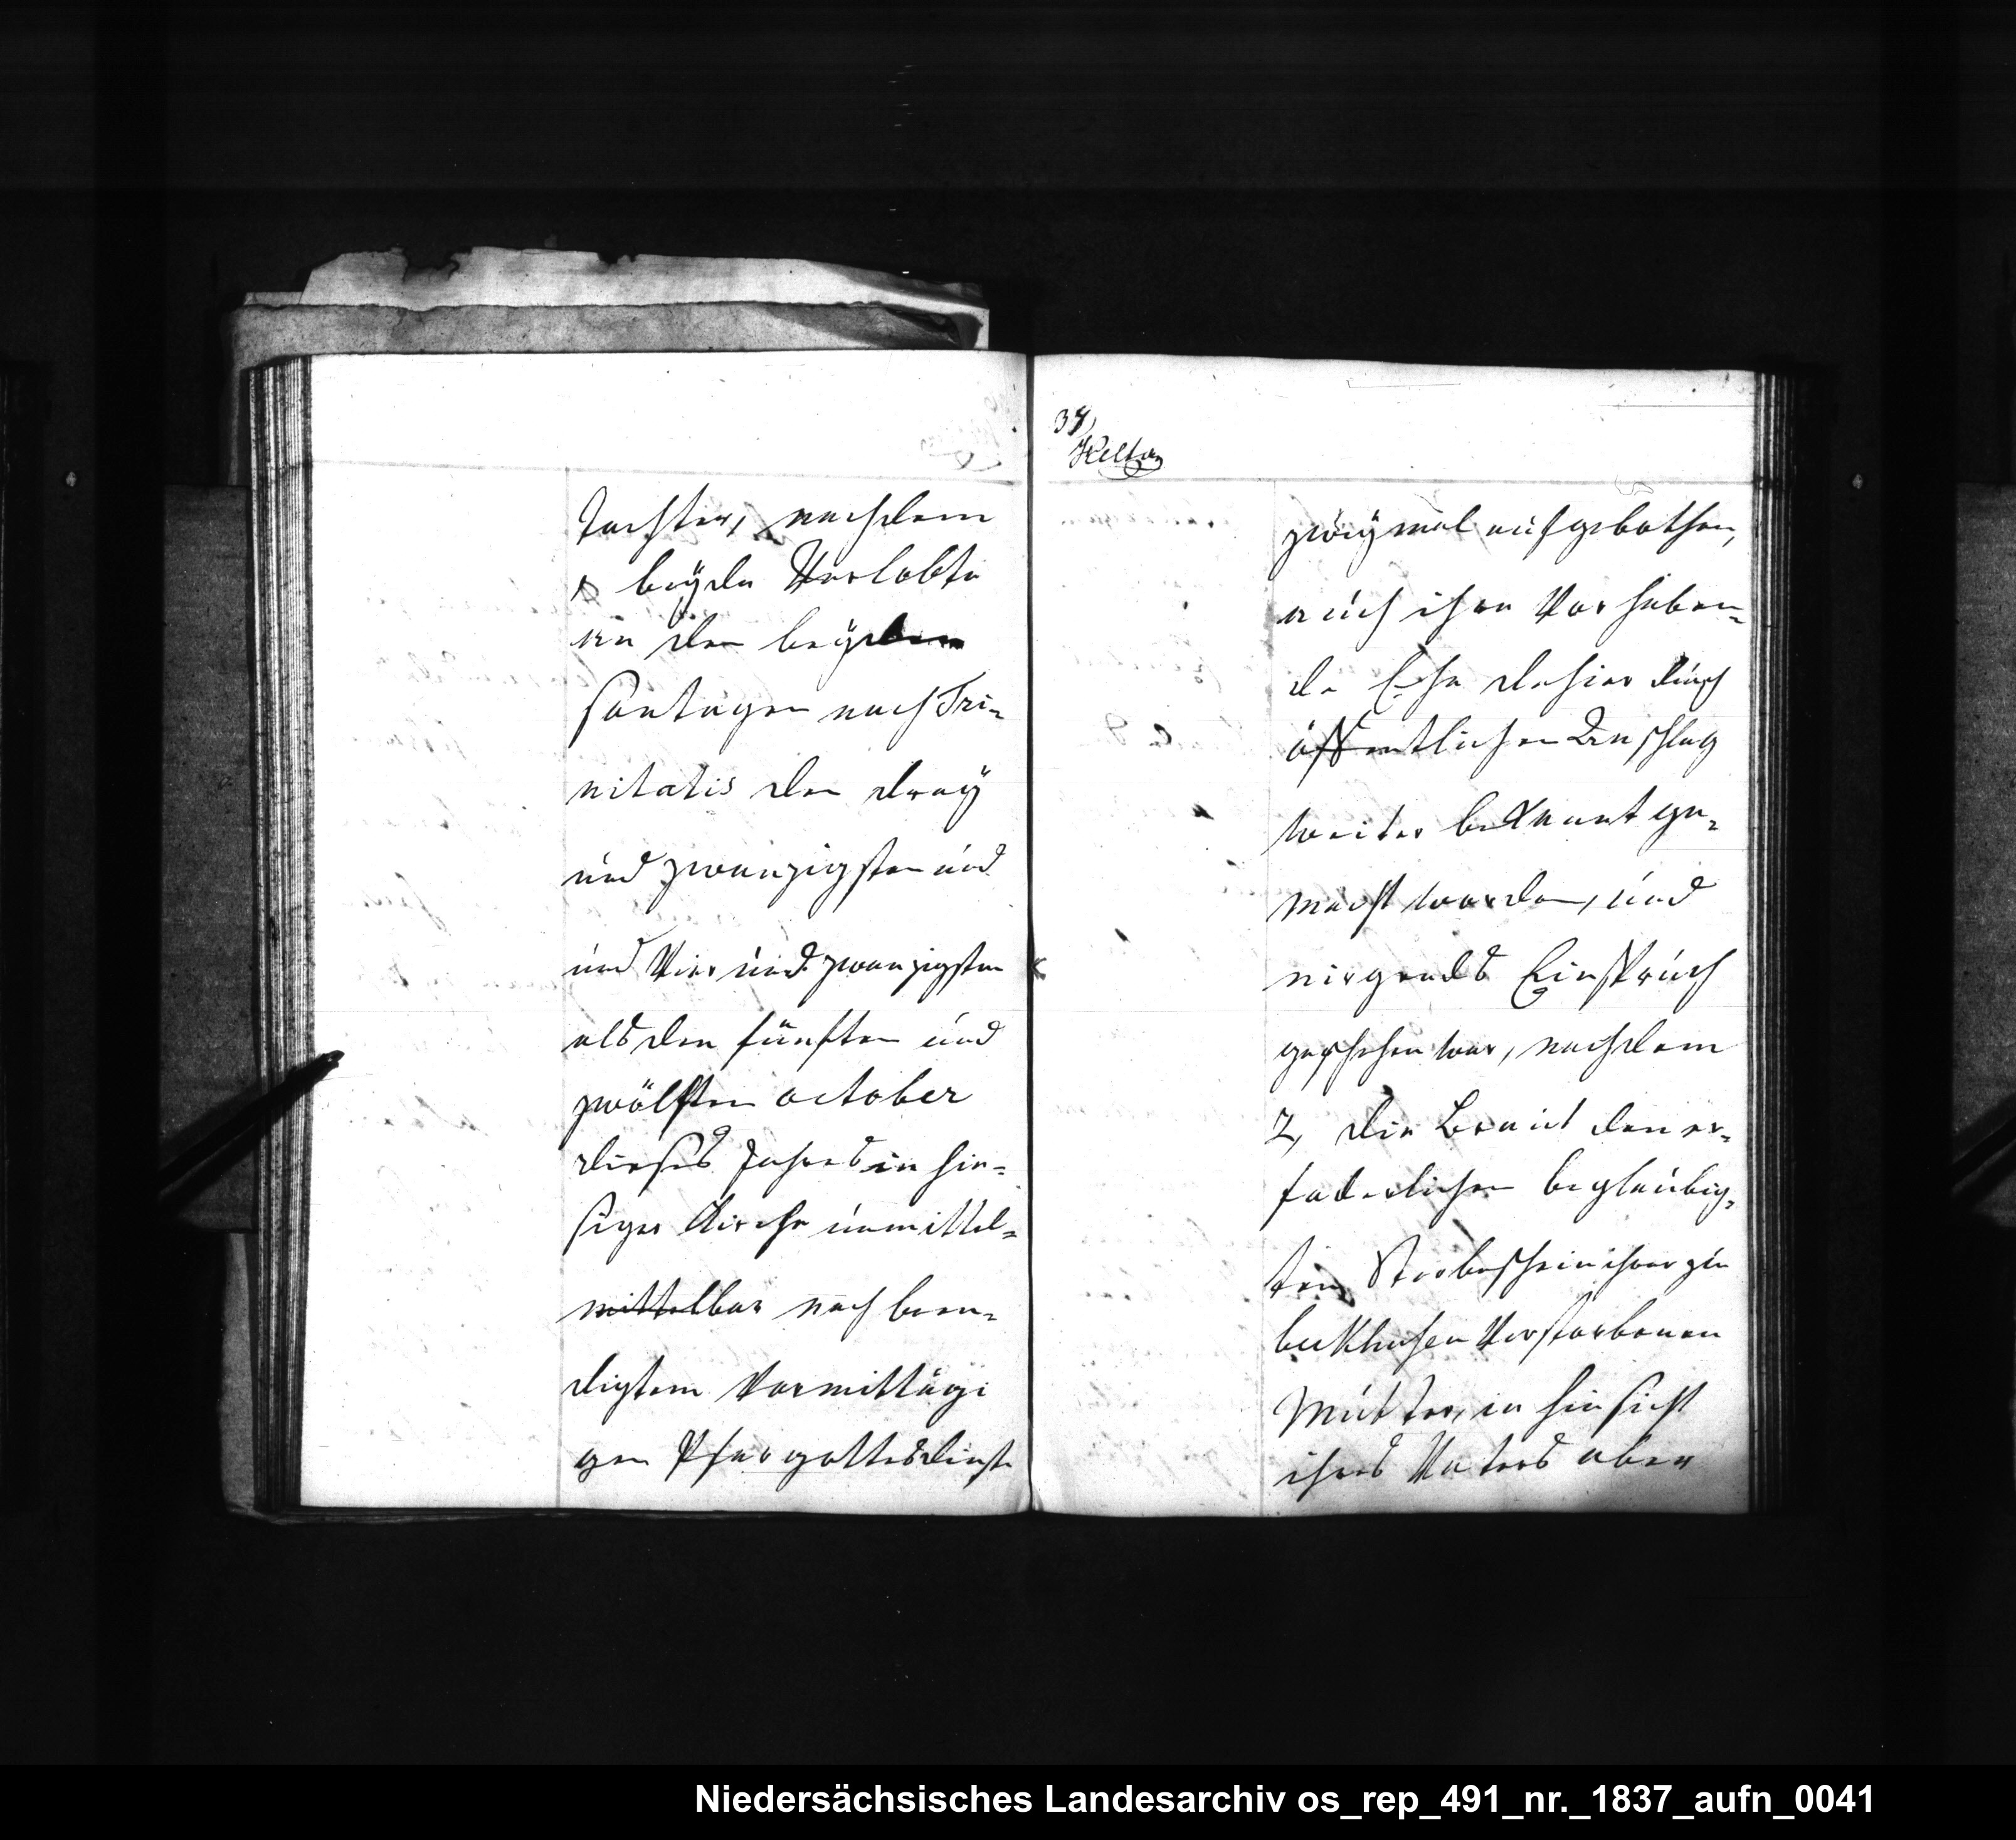 Tochter, nachdem
1, beyde Verlobte
an den beyden
Sontagen nach Tri-
nitatis den drey
und zwanzigsten und
und Vier und zwanzigsten
als den fünften und
zwölften october
dieses Jahres in hie-
siger Kirche unmittel-
mittelbar nach been-
digtem Vormittägi
gen Pfargottesdienste
37,
zweymal aufgebothen,
auch ihre Vorhaben-
de Ehe dahier durch
öffentlichen Anschlag
weiter bekannt ge-
macht worden, und
nirgends Einspruch
geschehen war, nachdem
2, die Braut den er-
foderlichen beglaubig-
ten Sterbeschein ihrer zu
verstorbenen
Mutter, in hinsicht
ihres Vaters aber
Niedersächsisches Landesarchiv os_rep_491_nr._1837_aufn_0041